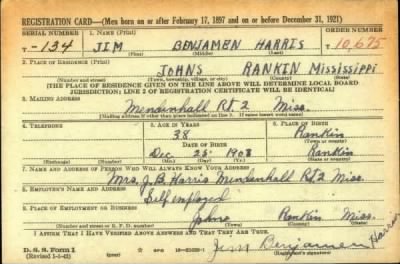 REGISTRATION CARD—(Men born on or after February 17, 1897 and on or before December 31, 1921)
SERIAL NUMBER 1. NAME (Print) ORDER NUMBER
T-134 JIM BENJAMEN HARRIS T10,675
(First) (Middle) (Last)
2. PLACE OF RESIDENCE (Print)
JOHNS RANKIN Mississippi
(Number and street) (Town, township, village, or city) (County) (State)
[THE PLACE OF RESIDENCE GIVEN ON THE LINE ABOVE WILL DETERMINE LOCAL BOARD
JURISDICTION; LINE 2 OF REGISTRATION CERTIFICATE WILL BE IDENTICAL]
3. MAILING ADDRESS
Mendenhall Rt. 2 Miss.
[Mailing address if other than place indicated on line 2. If same insert word same]
4. TELEPHONE 5. AGE IN YEARS 6. PLACE OF BIRTH
38 Rankin
DATE OF BIRTH (Town or county)
Dec. 25 Rankin
(Exchange) (Number) (Mo.) (Day) (Yr.) (State or country)
7. NAME AND ADDRESS OF PERSON WHO WILL ALWAYS KNOW YOUR ADDRESS
Mrs. J. B. Harris Mendenhall Rt. 2 Miss.
8. EMPLOYER'S NAME AND ADDRESS
Self employed
9. PLACE OF EMPLOYMENT OR BUSINESS
Johns Rankin Miss.
(Number and street or R. F. D. number) (Town) (County) (State)
I AFFIRM THAT I HAVE VERIFIED ABOVE ANSWERS AND THAT THEY ARE TRUE.
D. S. S. Form 1
(Revised 1-1-42) (over)
Jim Benjamen Harris
(Registrant's signature)